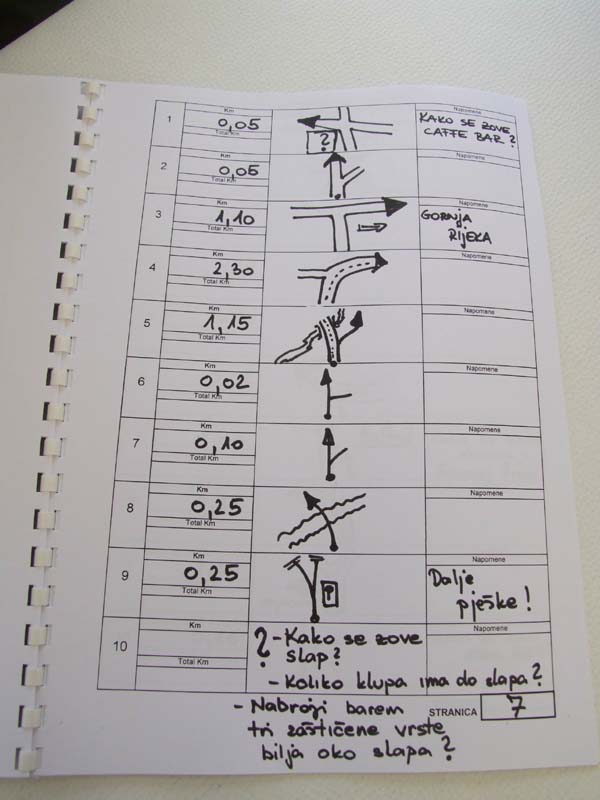 Km
Napomene
1
0,05
Total Km
?
KAKO SE ZOVE
CAFFE BAR?
Km
Napomene
2
0,05
Total Km
Km
Napomene
3
1,10
Total Km
GORNJA
RIJEKA
Km
Napomene
4
2,30
Total Km
Km
Napomene
5
1,15
Total Km
Km
Napomene
6
0,02
Total Km
Km
Napomene
7
0,10
Total Km
Km
Napomene
8
0,25
Total Km
Km
Napomene
9
0,25
Total Km
P
Dalje
pješke!
Km
Napomene
10
Total Km
? - Kako se zove
slap?
- Koliko klupa ima do slapa?
- Nabroji barem
tri zaštićene vrste
bilja oko slapa?
STRANICA 7